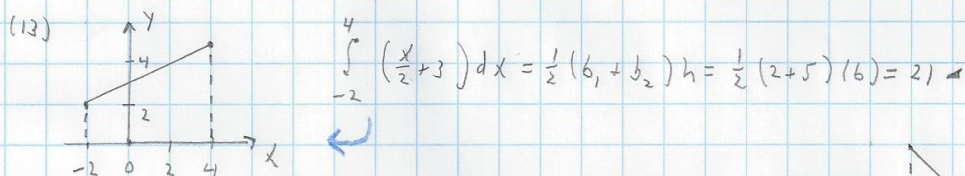 (13)
y
4
2
-2 0 2 4 x
∫₋₂⁴ (x/2 + 3) dx = 1/2 (b₁ + b₂) h = 1/2 (2+5)(6) = 21